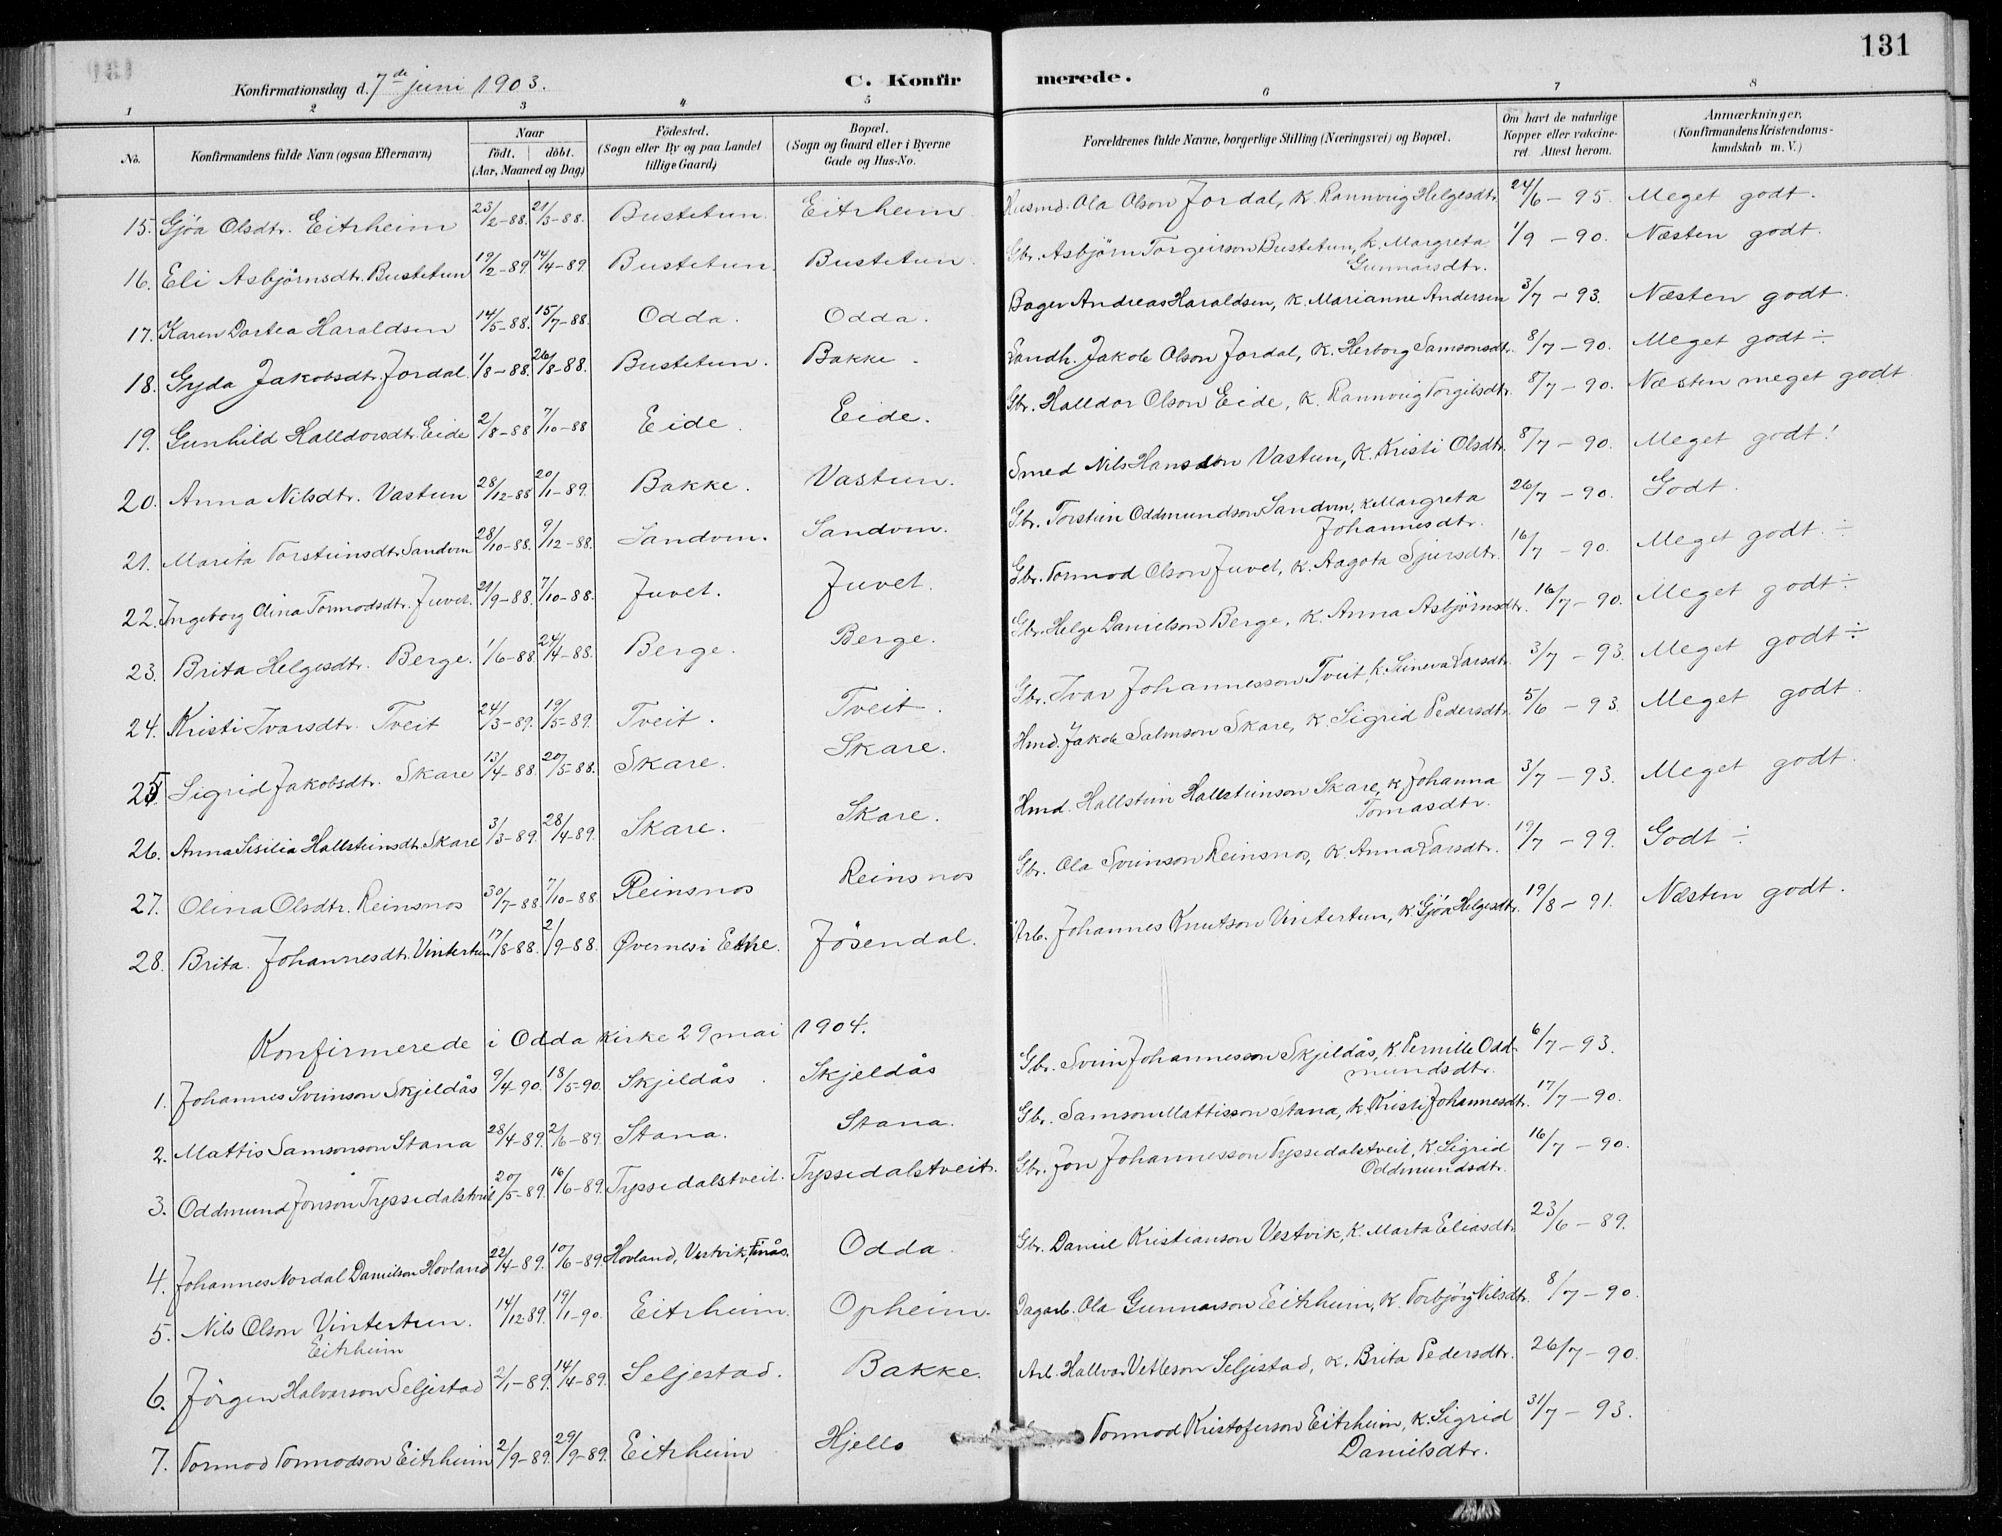 131
Konfirmationsdag d. 7de juni 1903.
C. Konfirmerede.
1 2 3 4 5 6 7 8
No.
Konfirmandens fulde Navn (ogsaa Efternavn)
Naar
födt. döbt.
(Aar, Maaned og Dag)
Födested.
(Sogn eller By og paa Landet
tillige Gaard)
Bopæl.
(Sogn og Gaard eller i Byerne
Gade og Hus-No.
Forældrenes fulde Navne, borgerlige Stilling (Næringsvei) og Bopæl.
Om havt de naturlige
Kopper eller vakcine-
ret. Attest herom.
Anmærkninger,
(Konfirmandens Kristendoms-
kundskab m. V.)
15. Gjøa Olsdtr. Eitrheim 23/2-88. 21/3-88. Bustetun. Eitrheim. Husmd. Ola Olson Jordal, K. Rannveig Helgesdtr. 24/6-95. Meget godt.
16. Eli Asbjørnsdtr. Bustetun 19/2-89. 14/4-89. Bustetun. Bustetun. Gbr. Asbjørn Torgeirson Bustetun, k. Margreta 1/9-90. Næsten godt.
Gunnarsdtr.
17. Karen Dortea Haraldsen 14/5-88. 15/7-88. Odda. Odda. Bager Andreas Haraldsen, K. Marianne Andersen 3/7-93. Næsten godt.
18. Gyda Jakobsdtr. Jordal. 1/8-88. 26/8-88. Bustetun. Bakke. Landh. Jakob Olson Jordal, K. Herborg Samsonsdtr. 8/7-90. Meget godt ÷
19. Gunhild Halldorsdtr. Eide 2/8-88 7/10-88 Eide. Eide. Gbr. Halldor Olson Eide, K. Rannveig Torgilsdtr. 8/7-90. Næsten meget godt
20. Anna Nilsdtr. Vastun 28/12-88 20/1-89. Bakke. Vastun. Smed Nils Hansson Vastun, K. Kristi Olsdtr. 8/7-90. Meget godt!
21. Marita Torsteinsdtr. Sandvin 28/10-88. 9/12-88. Sandvin. Sandvin. Gbr. Torstein Oddmundson Sandvin, K. Margreta 26/7-90. Godt.
Johannesdtr.
22. Ingeborg Olina Tormodsdtr. Juvet. 21/9-88. 7/10-88. Juvet. Juvet. Gbr. Tormod Olson Juvet, K. Aagota Sjursdtr. 16/7-90. Meget godt. ÷
23. Brita Helgesdtr. Berge. 1/6-88. 24/4-88. Berge. Berge. Gbr. Helge Danielson Berge, K. Anna Asbjörnsdtr. 16/7-90. Meget godt ÷
24. Kristi Ivarsdtr. Tveit 24/3-89. 19/5-89. Tveit. Tveit. Gbr. Ivar Johannesson Tveit, K. Sineva Larsdtr. 3/7-93. Meget godt ÷
25. Sigrid Jakobsdtr. Skare 13/4-88. 20/5-88. Skare. Skare. Hmd. Jakob Salmson Skare, K. Sigrid Pedersdtr. 5/6-93. Meget godt.
26. Anna Sisilia Hallsteinsdtr. Skare 3/3-89. 28/4-89. Skare. Skare. Hmd. Hallstein Hallsteinson Skare, K. Johanna 3/7-93. Meget godt.
Tomasdtr.
27. Olina Olsdtr. Reinsnos 30/7-88. 7/10-88. Reinsnos Reinsnos Gbr. Ola Sveinson Reinsnos, K. Anna Larsdtr. 19/7-99. Godt ÷
28. Brita Johannesdtr. Vintertun 17/8-88. 2/9-88. Øvernes i Etne. Jösendal. Arb. Johannes Knutson Vintertun, K. Gjøa Helgesdtr. 19/8-91. Næsten godt.
Konfirmerede i Odda Kirke 29 mai 1904.
1. Johannes Sveinson Skjeldås 9/4-90. 18/5-90. Skjeldås. Skjeldås Gbr. Svein Johannesson Skjeldås, K. Pernille Odd- 6/7-93.
mundsdtr.
2. Mattis Samsonson Stana 28/4-89. 2/6-89. Stana. Stana. Gbr. Samson Mattisson Stana, K. Kristi Johannesdtr. 17/7-90.
3. Oddmund Jonson Tyssedalstveit 20/5-89. 16/6-89. Tyssedalstveit. Tyssedalstveit. Gbr. Jon Johannesson Tyssedalstveit, K. Sigrid 16/7-90.
Oddmundsdtr.
4. Johannes Nordal Danielson Hovland 22/4-89. 10/6-89. Hovland, Vestvik, Tinås. Odda. Gbr. Daniel Kristianson Vestvik, K. Marta Eliasdtr. 23/6-89.
5. Nils Olson Vintertun. 14/12 89. 19/1-90. Eitrheim. Opheim. Dagarb. Ola Gunnarson Eitrheim, K. Torbjörg Nilsdtr. 8/7-90.
Eitrheim
6. Jörgen Halvarson Seljestad 2/1-89. 14/4-89. Seljestad. Bakke. Arb. Hallvar Vetleson Seljestad, K. Brita Pedersdtr. 26/7-90.
7. Tormod Tormodson Eitrheim 2/9-89. 29/9-89. Eitrheim Hjello Tormod Kristoferson Eitrheim, K. Sigrid 31/7-93.
Danielsdtr.